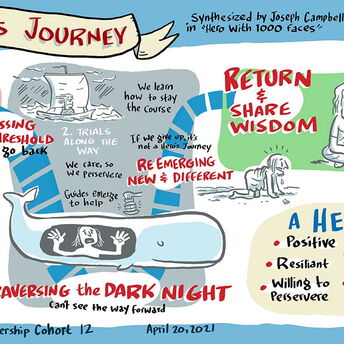 S JOURNEY
Synthesized by Joseph Campbell
in "Hero with 1000 Faces"
We learn
how to stay
the course
SSING
THRESHOLD
go back
2. TRIALS
ALONG THE
WAY
We care, so
we perservere
Guides emerge
to help
If we give up, it's
not a Hero's Journey
RE EMERGING
NEW & DIFFERENT
RETURN
&
SHARE
WISDOM
RAVERSING the DARK NIGHT
Can't see the way forward
A HE
• Positive
• Resiliant
• Willing to
Perservere
ership Cohort 12
April 20, 2021